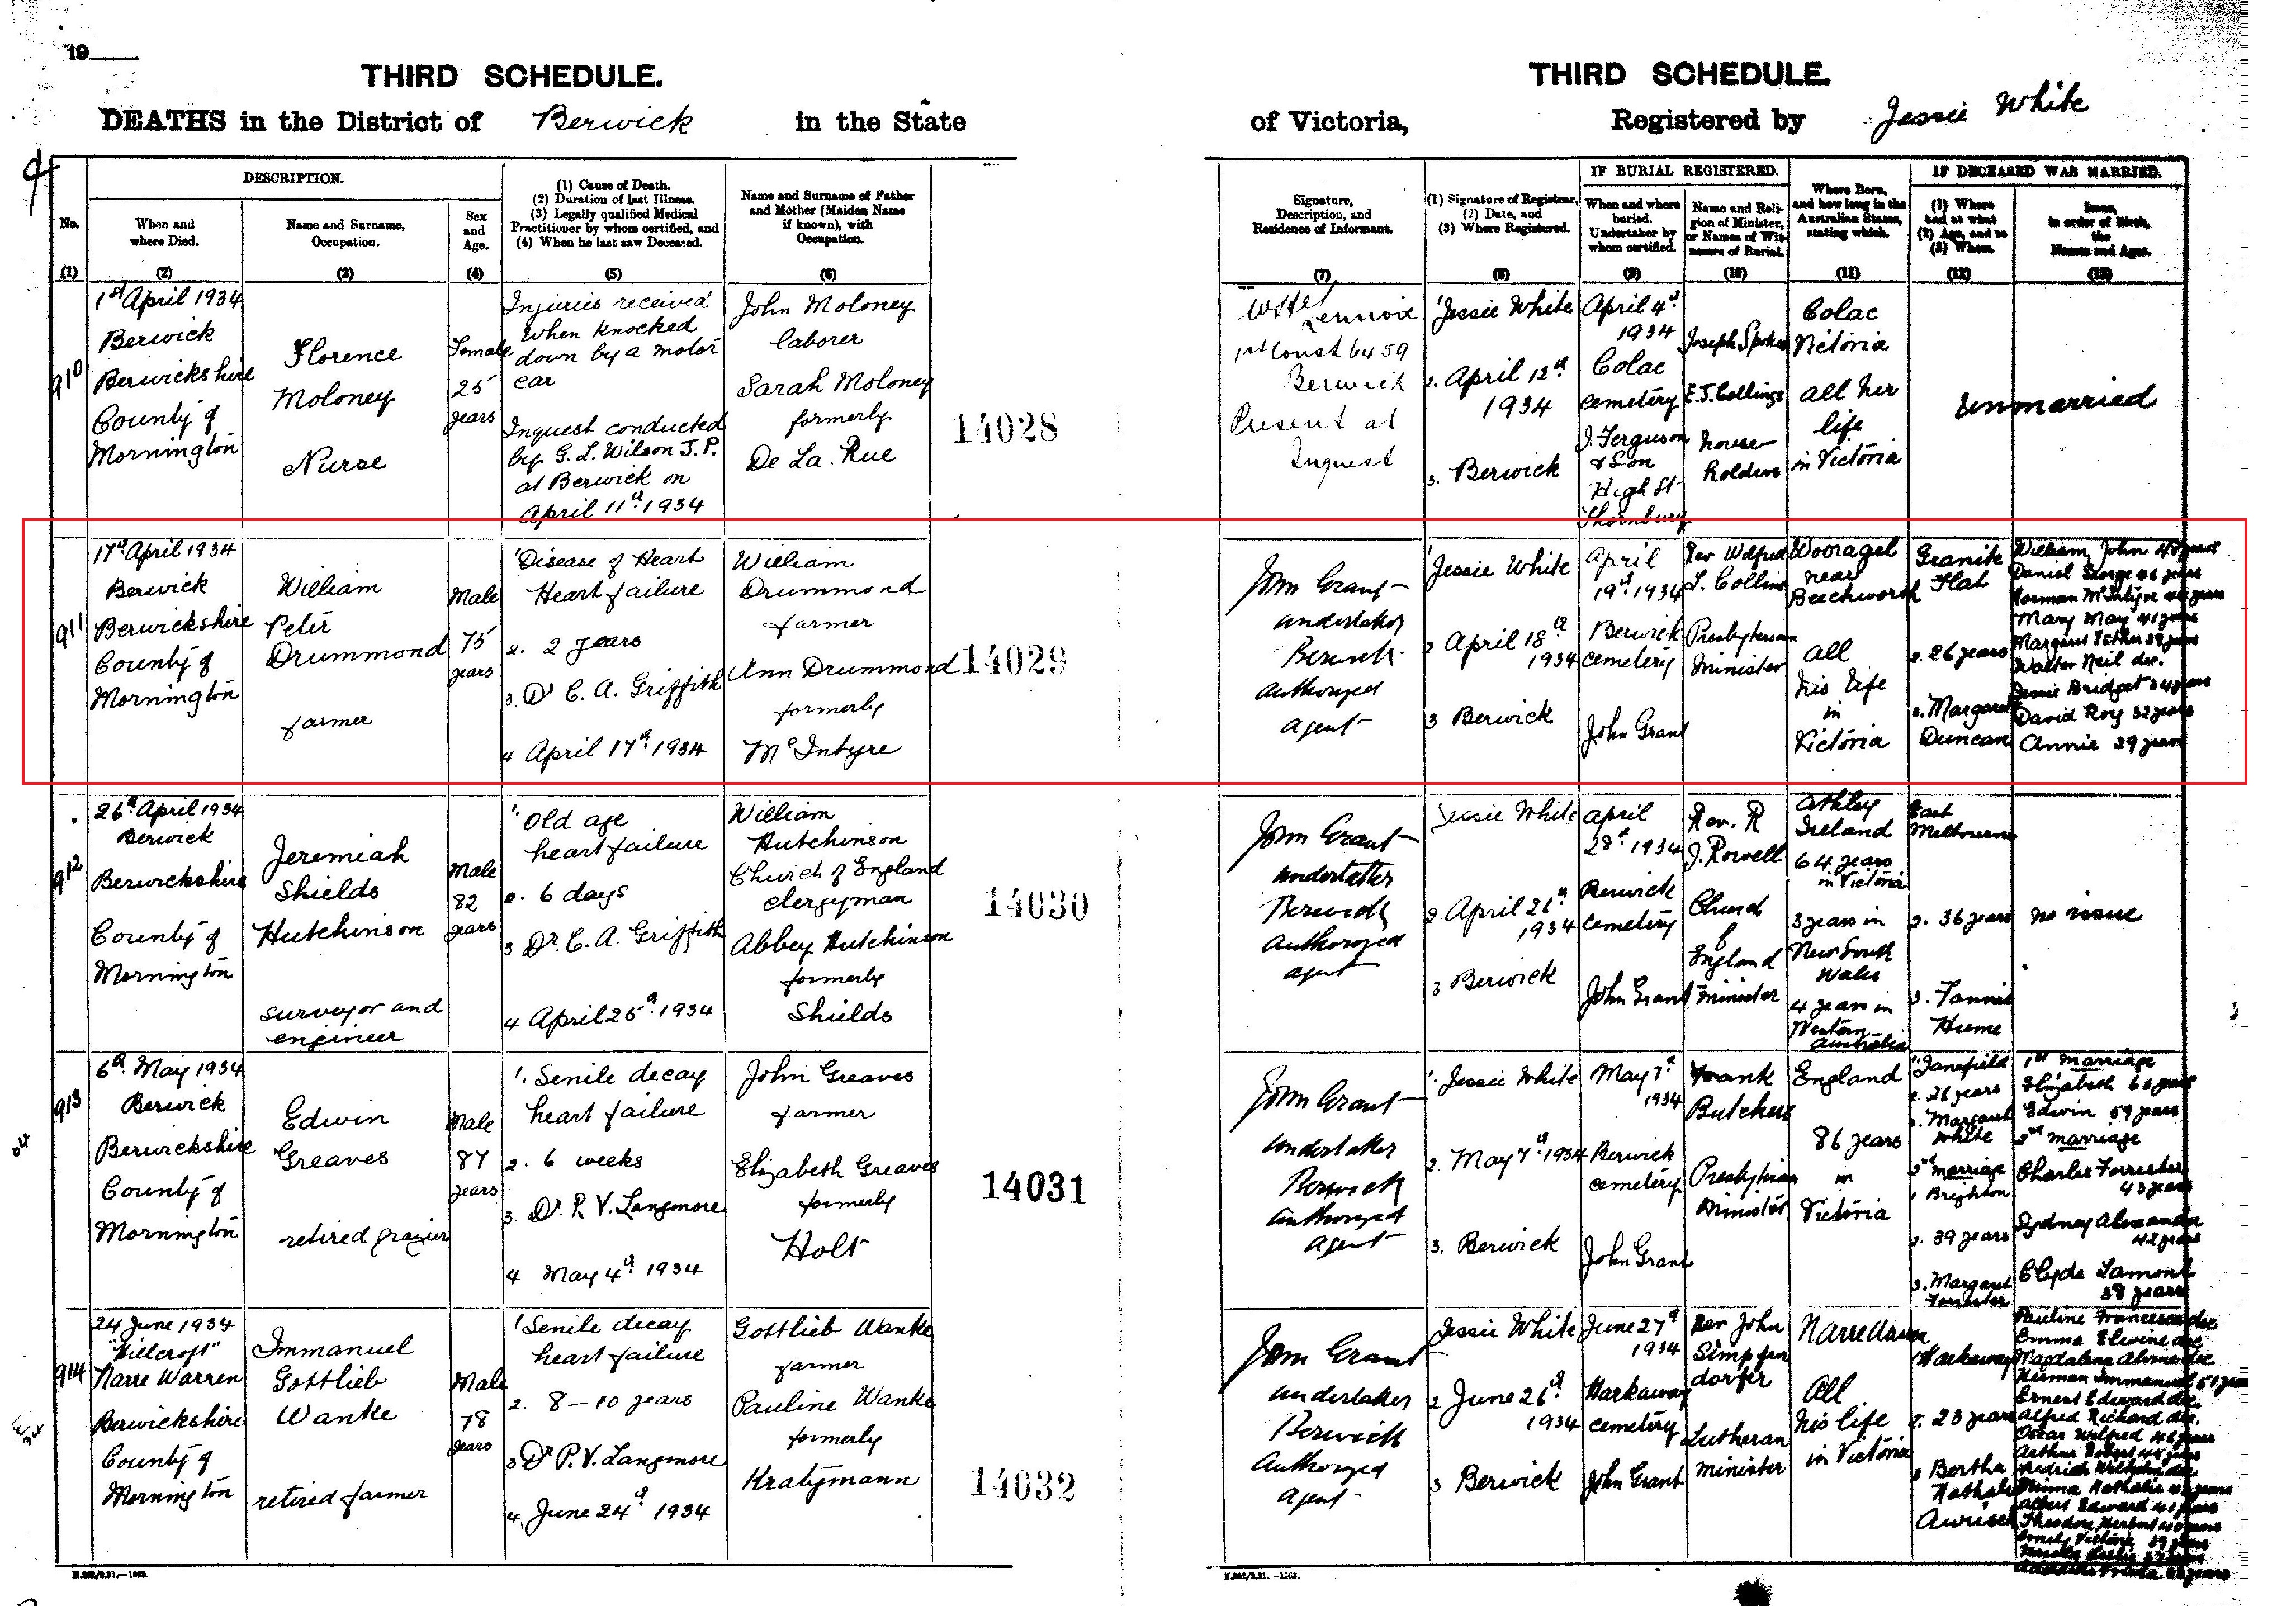 19
THIRD SCHEDULE.
DEATHS in the District of Berwick in the State
No.
(1)
DESCRIPTION.
When and
where Died.
(2)
Name and Surname,
Occupation.
(3)
Sex
and
Age.
(4)
(1) Cause of Death.
(2) Duration of last Illness.
(3) Legally qualified Medical
Practitioner by whom certified, and
(4) When he last saw Deceased.
(5)
Name and Surname of Father
and Mother (Maiden Name
if known), with
Occupation.
(6)
910
1st April 1934
Berwick
Berwickshire
County of
Mornington
Florence
Moloney
Nurse
Female
25
years
Injuries received
when knocked
down by a motor
car
Inquest conducted
by G. L. Wilson J. P.
at Berwick on
April 11th 1934
John Moloney
laborer
Sarah Moloney
formerly
De La Rue
14028
911
17th April 1934
Berwick
Berwickshire
County of
Mornington
William
Peter
Drummond
farmer
Male
75
years
1 Disease of Heart
Heart failure
2. 2 years
3. Dr C. A. Griffith
4 April 17th 1934
William
Drummond
farmer
Ann Drummond
formerly
McIntyre
14029
912
26th April 1934
Berwick
Berwickshire
County of
Mornington
Jeremiah
Shields
Hutchinson
surveyor and
engineer
Male
82
years
1 Old age
heart failure
2. 6 days
3 Dr. C. A. Griffith
4 April 25th 1934
William
Hutchinson
Church of England
clergyman
Abbey Hutchinson
formerly
Shields
14030
913
6th May 1934
Berwick
Berwickshire
County of
Mornington
Edwin
Greaves
retired grazier
Male
87
years
1. Senile decay
heart failure
2. 6 weeks
3. Dr. P. V. Langmore
4 May 4th 1934
John Greaves
farmer
Elizabeth Greaves
formerly
Holt
14031
914
24 June 1934
"Hillcroft"
Narre Warren
Berwickshire
County of
Mornington
Immanuel
Gottlieb
Wanke
retired farmer
Male
78
years
1 Senile decay
heart failure
2. 8-10 years
3 Dr P. V. Langmore
4. June 24th 1934
Gottlieb Wanke
farmer
Pauline Wanke
formerly
Kratzmann
14032
THIRD SCHEDULE.
of Victoria, Registered by Jessie White
Signature,
Description, and
Residence of Informant.
(7)
(1) Signature of Registrar,
(2) Date, and
(3) Where Registered.
(8)
IF BURIAL REGISTERED.
When and where
buried.
Undertaker by
whom certified.
(9)
Name and Reli-
gion of Minister,
or Names of Wit-
nesses of Burial.
(10)
Where Born,
and how long in the
Australian States,
stating which.
(11)
IF DECEASED WAS MARRIED.
(1) Where
and at what
(2) Age, and to
(3) Whom.
(12)
Issue,
in order of Birth,
the
Names and Ages.
(13)
Lennox
1st Const 6459
Berwick
Present at
Inquest
1 Jessie White
2. April 12th
1934
3. Berwick
April 4th
1934
Colac
cemetery
J. Ferguson
& Son
High St
Thornbury
Joseph Spokes
E. J. Collings
house-
holders
Colac
Victoria
all her
life
in Victoria
Unmarried
John Grant
undertaker
Berwick
authorized
agent
1 Jessie White
2 April 18th
1934
3 Berwick
April
19th 1934
Berwick
cemetery
John Grant
Rev Wilfred
L. Collins
Presbyterian
Minister
Wooragel
near
Beechworth
all
his life
in
Victoria
Granite
Flat
2. 26 years
3. Margaret
Duncan
William John 48 years
Daniel George 46 years
Norman McIntyre years
Mary May 41 years
Margaret Esther 39 years
Walter Neil dec.
Jessie Bridget 34 years
David Roy 32 years
Annie 29 years
John Grant
undertaker
Berwick
Authorized
agent
Jessie White
2 April 26th
1934
3 Berwick
April
28th 1934
Berwick
cemetery
John Grant
Rev. R
J. Rowell
Church
of
England
minister
Athley
Ireland
64 years
in Victoria
3 years in
New South
Wales
4 years in
Western
Australia
East
Melbourne
2. 36 years
3. Fannie
Hume
no issue
John Grant
undertaker
Berwick
Authorized
agent
1. Jessie White
2. May 7th 1934
3. Berwick
May 7th
1934
Berwick
cemetery
John Grant
Frank
Butchers
Presbyterian
Minister
England
86 years
in
Victoria
1 Janefield
2. 26 years
3. Margaret
White
2nd marriage
1 Brighton
2. 39 years
3. Margaret
Forrester
1st marriage
Elizabeth years
Edwin 59 years
2nd marriage
Charles Forrester
43 years
Sydney Alexander
42 years
Clyde Lamont
38 years
John Grant
undertaker
Berwick
Authorized
agent
Jessie White
2 June 26th
1934
3 Berwick
June 27th
1934
Harkaway
cemetery
John Grant
Rev John
Simpfen
dorfer
Lutheran
minister
Narre Warren
All
his life
in Victoria
1 Harkaway
2. 23 years
3 Bertha
Nathalie
Pauline Francesca dec
Emma Elwine dec
Magdalena Alvine dec
Herman Immanuel 51 years
Ernest Edward dec.
Alfred Richard dec.
Oscar Wilfred 46 years
Arthur Robert years
Wilhelm dec
Minna Nathalie years
Albert Edward 41 years
Theodore Herbert 40 years
Emily Victoria 39 years
Leslie 37 years
Frieda years